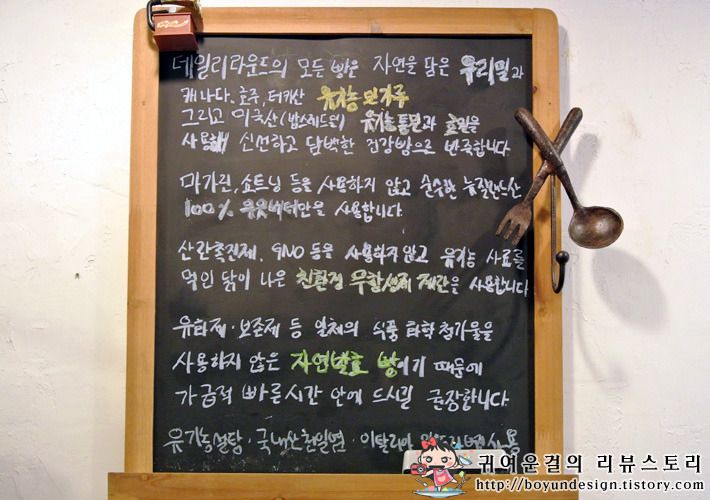 데일리라운드의 모든 빵은 자연을 담은 우리밀과
캐나다. 호주, 터키산 유기농 밀가루
그리고 미국산(밥스레드밀) 유기농통밀과 호밀을
사용해 신선하고 담백한 건강빵으로 반죽합니다.
마가린, 쇼트닝 등을 사용하지 않고 순수한 뉴질랜드산
100% 우유버터만을 사용합니다.
산란촉진제. GMO 등을 사용하지 않고 유기농 사료를
먹인 닭이 나은 친환경 무항생제 계란을 사용합니다
유화제·보존제 등 일체의 식품 화학첨가물을
사용하지 않은 자연발효 빵이기 때문에
가급적 빠른시간 안에 드시길 권장합니다.
유기농설탕·국내산천일염·이탈리아 사용
귀여운걸의 리뷰스토리
http://boyundesign.tistory.com